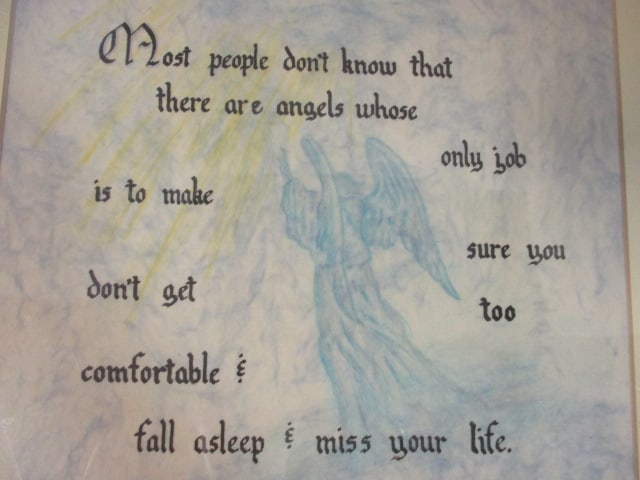 Most people don't know that
there are angels whose
only job
is to make
sure you
don't get
too
comfortable &
fall asleep & miss your life.